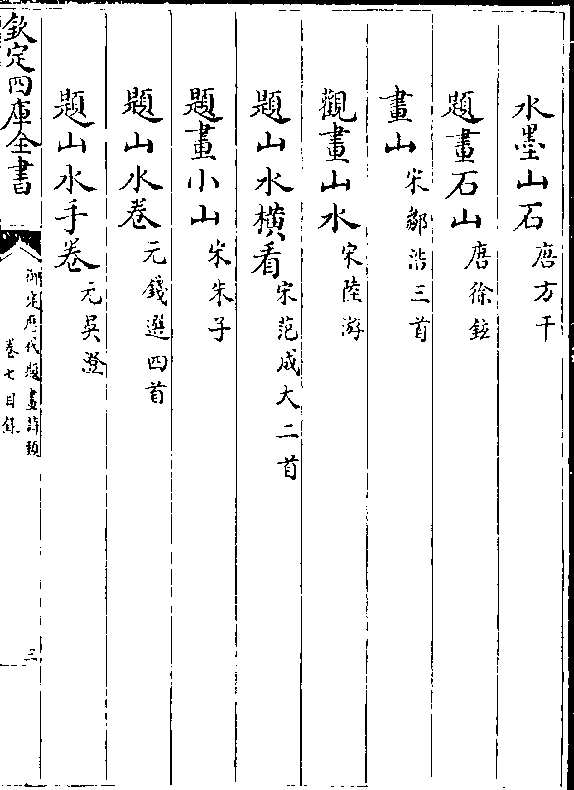 水墨山石 唐方干
題畫石山 唐徐鉉
畫山 宋鄒浩三首
觀畫山水 宋陸游
題山水橫看 宋范成大二首
題畫小山 宋朱子
題山水卷 元錢選四首
題山水手卷 元吳澄
欽定四庫全書
御定歴代題畫詩類
卷七目錄
三